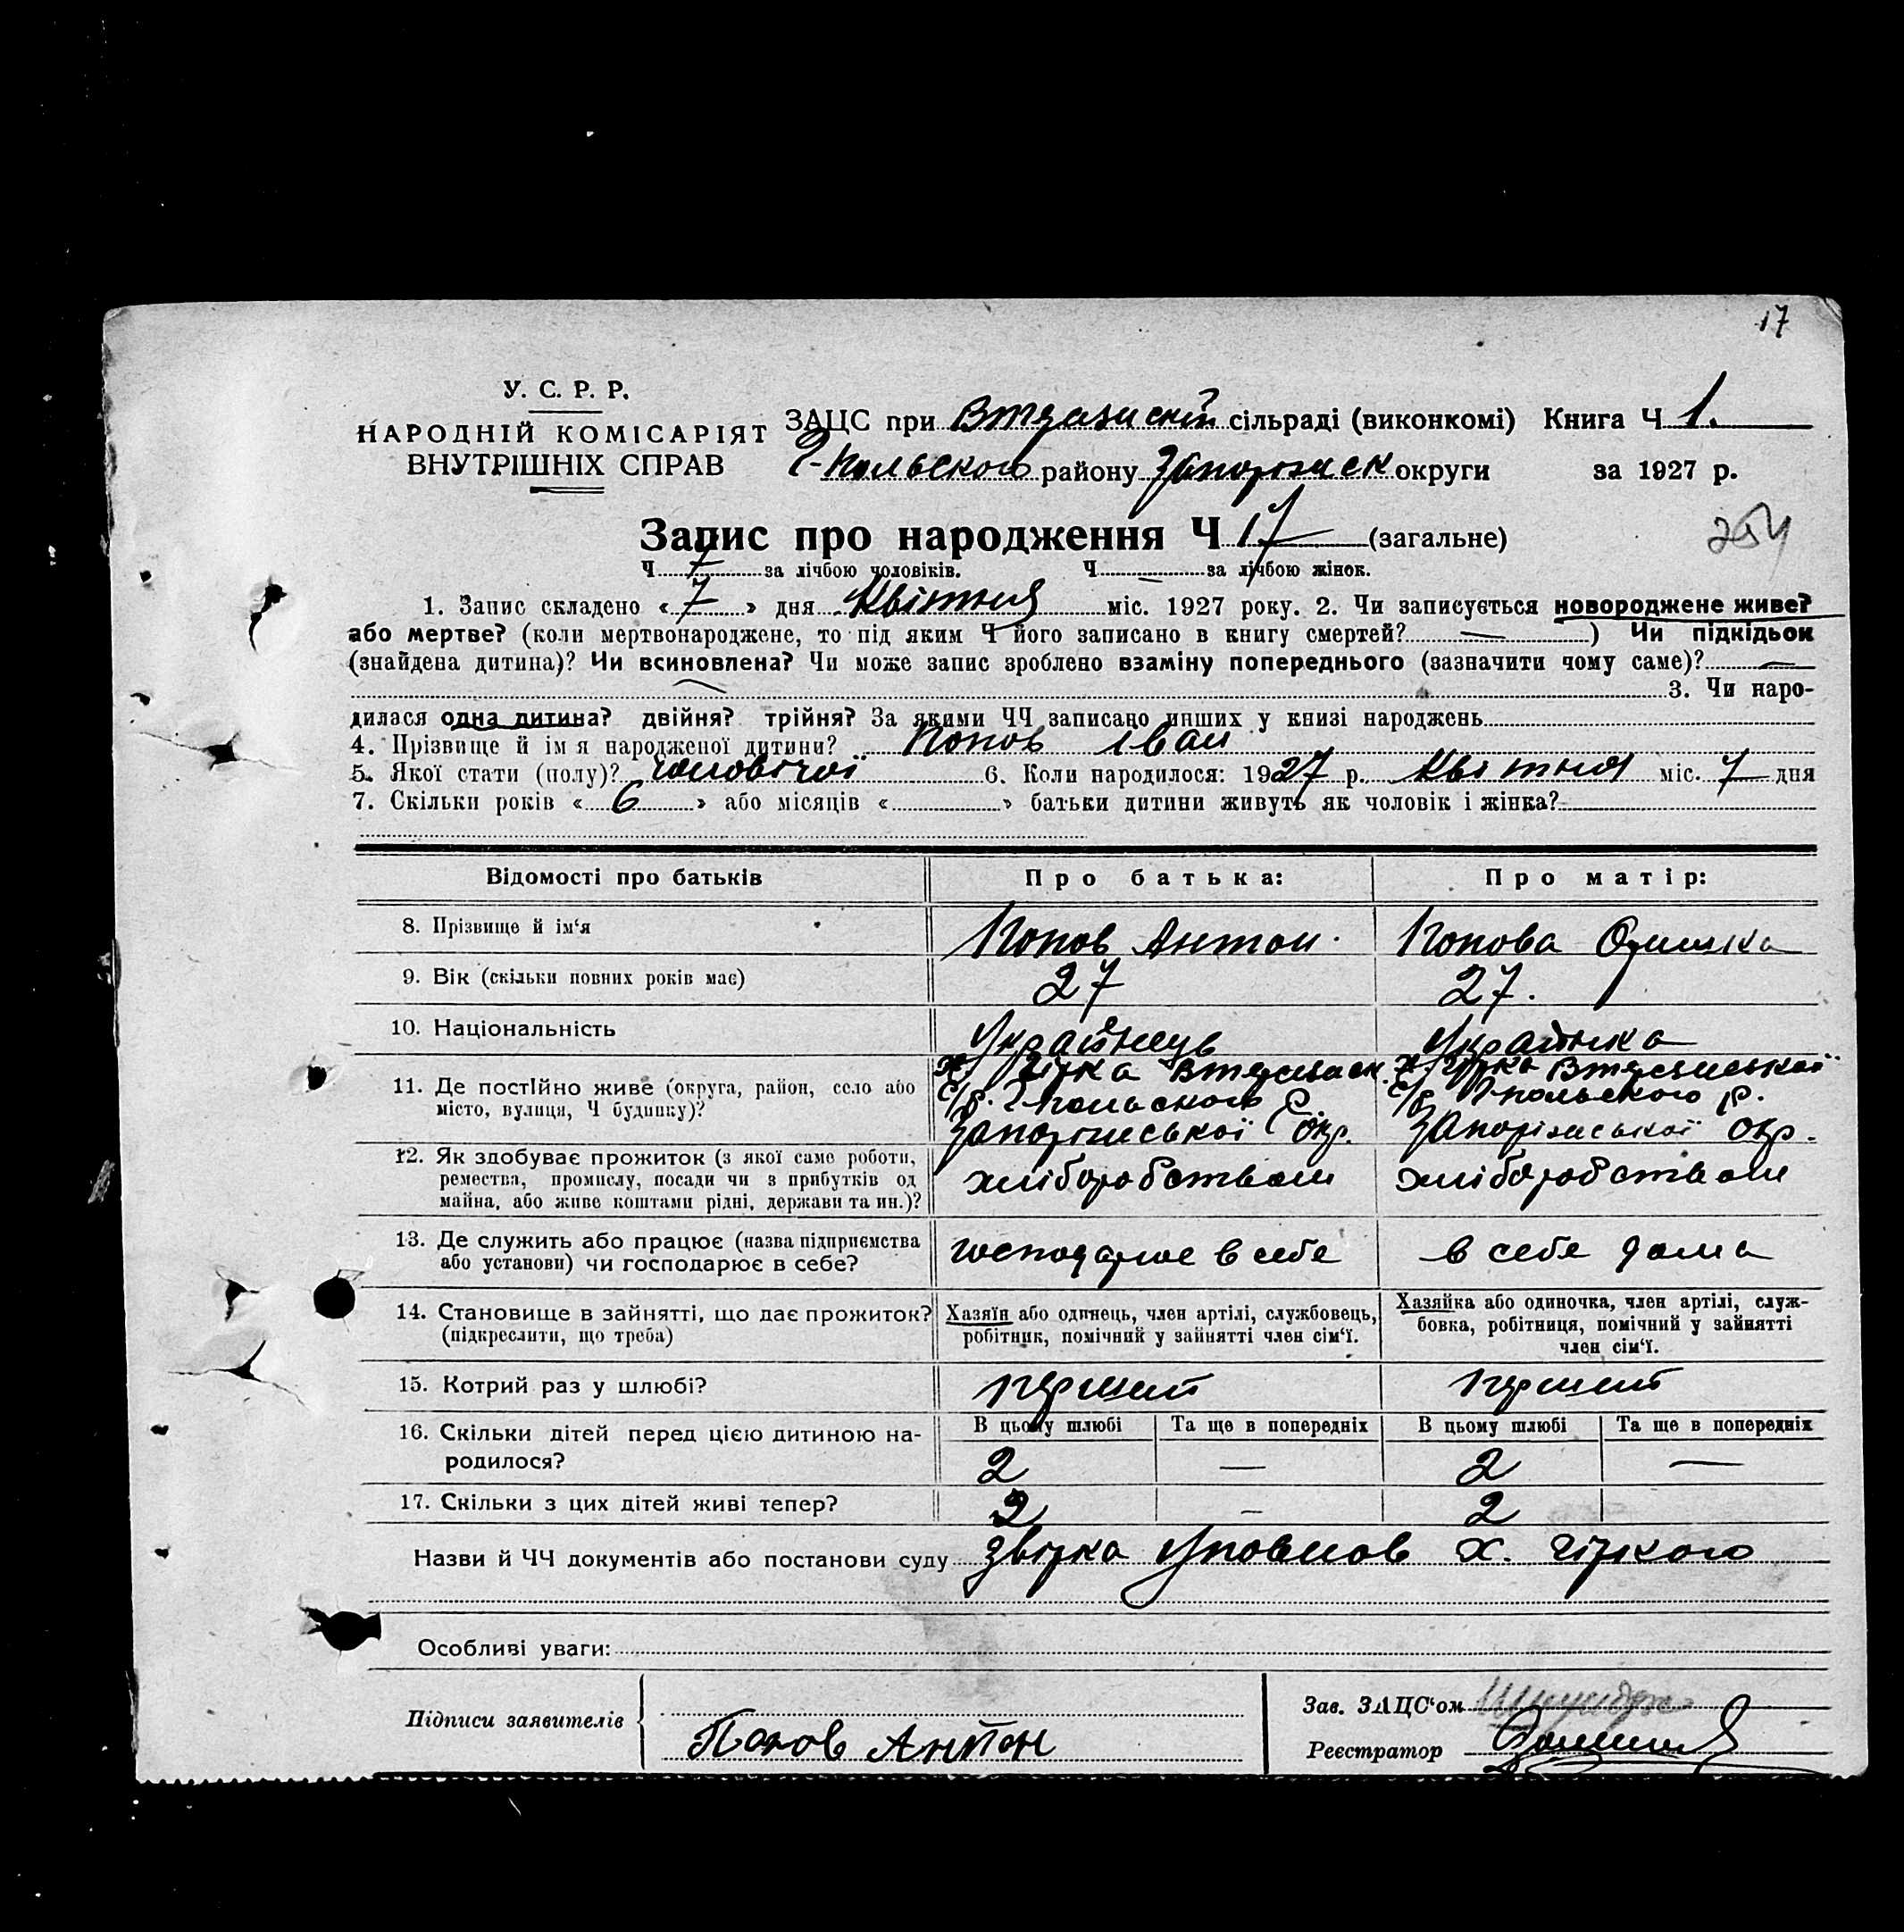 17
У. С. Р. Р.
НАРОДНІЙ КОМІСАРІЯТ
ВНУТРІШНІХ СПРАВ
ЗАЦС при сільраді (виконкомі) Книга Ч 1.
Г-Польського району Запорізьк округи за 1927 р.
Запис про народження Ч 17 (загальне)
254
Ч 7 за лічбою чоловіків. Ч — за лічбою жінок.
1. Запис складено « 7 » дня Квітня міс. 1927 року. 2. Чи записується новороджене живе?
або мертве? (коли мертвонароджене, то під яким Ч його записано в книгу смертей? — ) Чи підкідьок
(знайдена дитина)? Чи всиновлена? Чи може запис зроблено взаміну попереднього (зазначити чому саме)? —
3. Чи наро-
дилася одна дитина? двійня? трійня? За якими ЧЧ записано инших у книзі народжень
4. Прізвище й ім я народженої дитини? Попов Іван
5. Якої стати (полу)? чоловічої 6. Коли народилося: 1927 р. Квітня міс. 7 дня
7. Скільки років « 6 » або місяців « » батьки дитини живуть як чоловік і жінка?
Відомості про батьків Про батька: Про матір:
8. Прізвище й ім‘я Попов Антон. Попова
9. Вік (скільки повних років має) 27 27.
10. Національність Українець Українка
11. Де постійно живе (округа, район, село або
місто, вулиця, Ч будинку)?
х.
с/р. Г-Польського р.
Запорізської окр.
х.
с/р Г-Польського р.
Запорізської окр.
12. Як здобуває прожиток (з якої саме роботи,
ремества, промислу, посади чи з прибутків од
майна, або живе коштами рідні, держави та ин.)?
хліборобством хліборобством
13. Де служить або працює (назва підприємства
або установи) чи господарює в себе?
господарює в себе в себе дома
14. Становище в зайнятті, що дає прожиток?
(підкреслити, що треба)
Хазяїн або одинець, член артілі, службовець,
робітник, помічний у зайнятті член сім‘ї.
Хазяйка або одиночка, член артілі, служ-
бовка, робітниця, помічний у зайнятті
член сім‘ї.
15. Котрий раз у шлюбі? перший перший
16. Скільки дітей перед цією дитиною на-
родилося?
В цьому шлюбі Та ще в попередніх В цьому шлюбі Та ще в попередніх
2 — 2 —
17. Скільки з цих дітей живі тепер? 2 - 2
Назви й ЧЧ документів або постанови суду х.
Особливі уваги:
Підписи заявителів
Попов Антон
Зав. ЗАЦС‘ом
Реєстратор